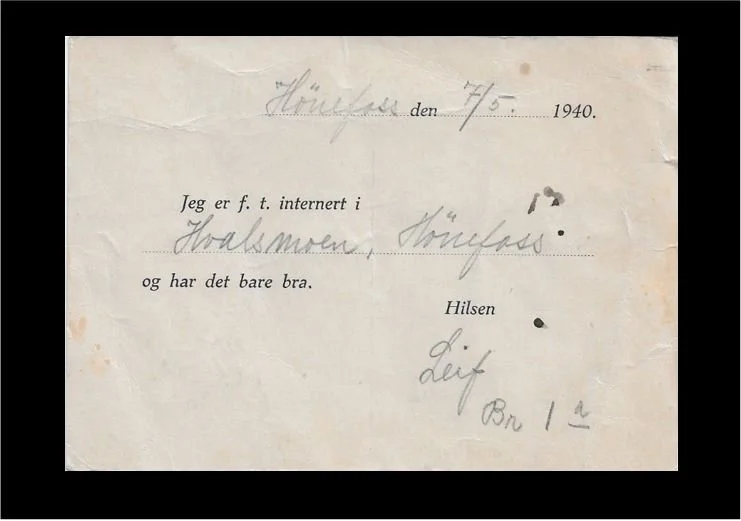 Hönefoss den 7/5. 1940.
Jeg er f. t. internert i
Hvalsmoen, Hönefoss
og har det bare bra.
Hilsen
Leif
Br 1 a